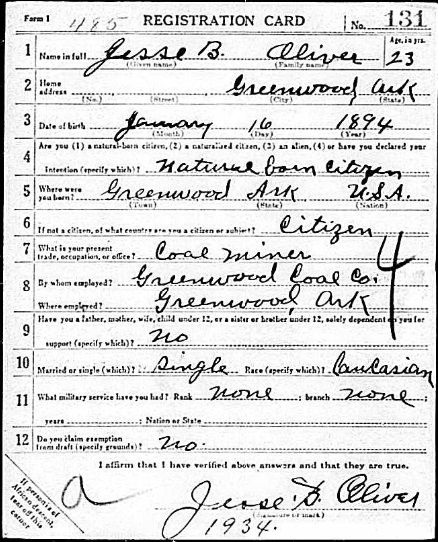 Form 1 485 REGISTRATION CARD No. 131
1 Name in full Jesse B. Oliver Age, in yrs. 23
(Given name) (Family name)
2 Home address Greenwood Ark
(No.) (Street) (City) (State)
3 Date of birth January 16 1894
(Month) (Day) (Year)
4 Are you (1) a natural-born citizen, (2) a naturalized citizen, (3) an alien, (4) or have you declared your
intention (specify which)? Natural born citizen
5 Where were you born? Greenwood Ark U.S.A.
(Town) (State) (Nation)
6 If not a citizen, of what country are you a citizen or subject? Citizen
7 What is your present trade, occupation, or office? Coal miner
8 By whom employed? Greenwood Coal Co.
Where employed? Greenwood, Ark
4
9 Have you a father, mother, wife, child under 12, or a sister or brother under 12, solely dependent on you for
support (specify which)? no
10 Married or single (which)? Single Race (specify which)? Caucasian
11 What military service have you had? Rank none ; branch none ;
years ; Nation or State
12 Do you claim exemption from draft (specify grounds)? No.
I affirm that I have verified above answers and that they are true.
a
Jesse B. Oliver
(Signature or mark)
1934.
If person is of African descent, tear off this corner.